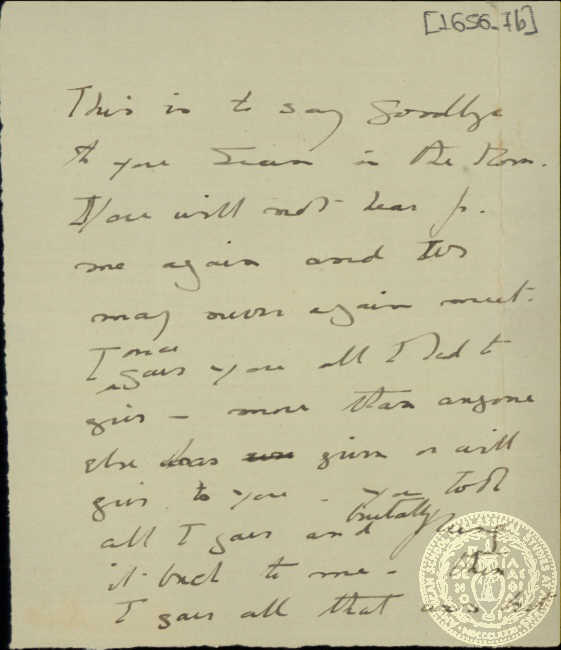 [1656-7b]
This is to say Goodbye
to you in the Rom.
You will not hear fr.
me again and we
may never again meet.
once
I gave you all I had to
give — more than anyone
else has given or will
give to you - you took
all I gave and brutally flung
it back to me -
I gave all that was